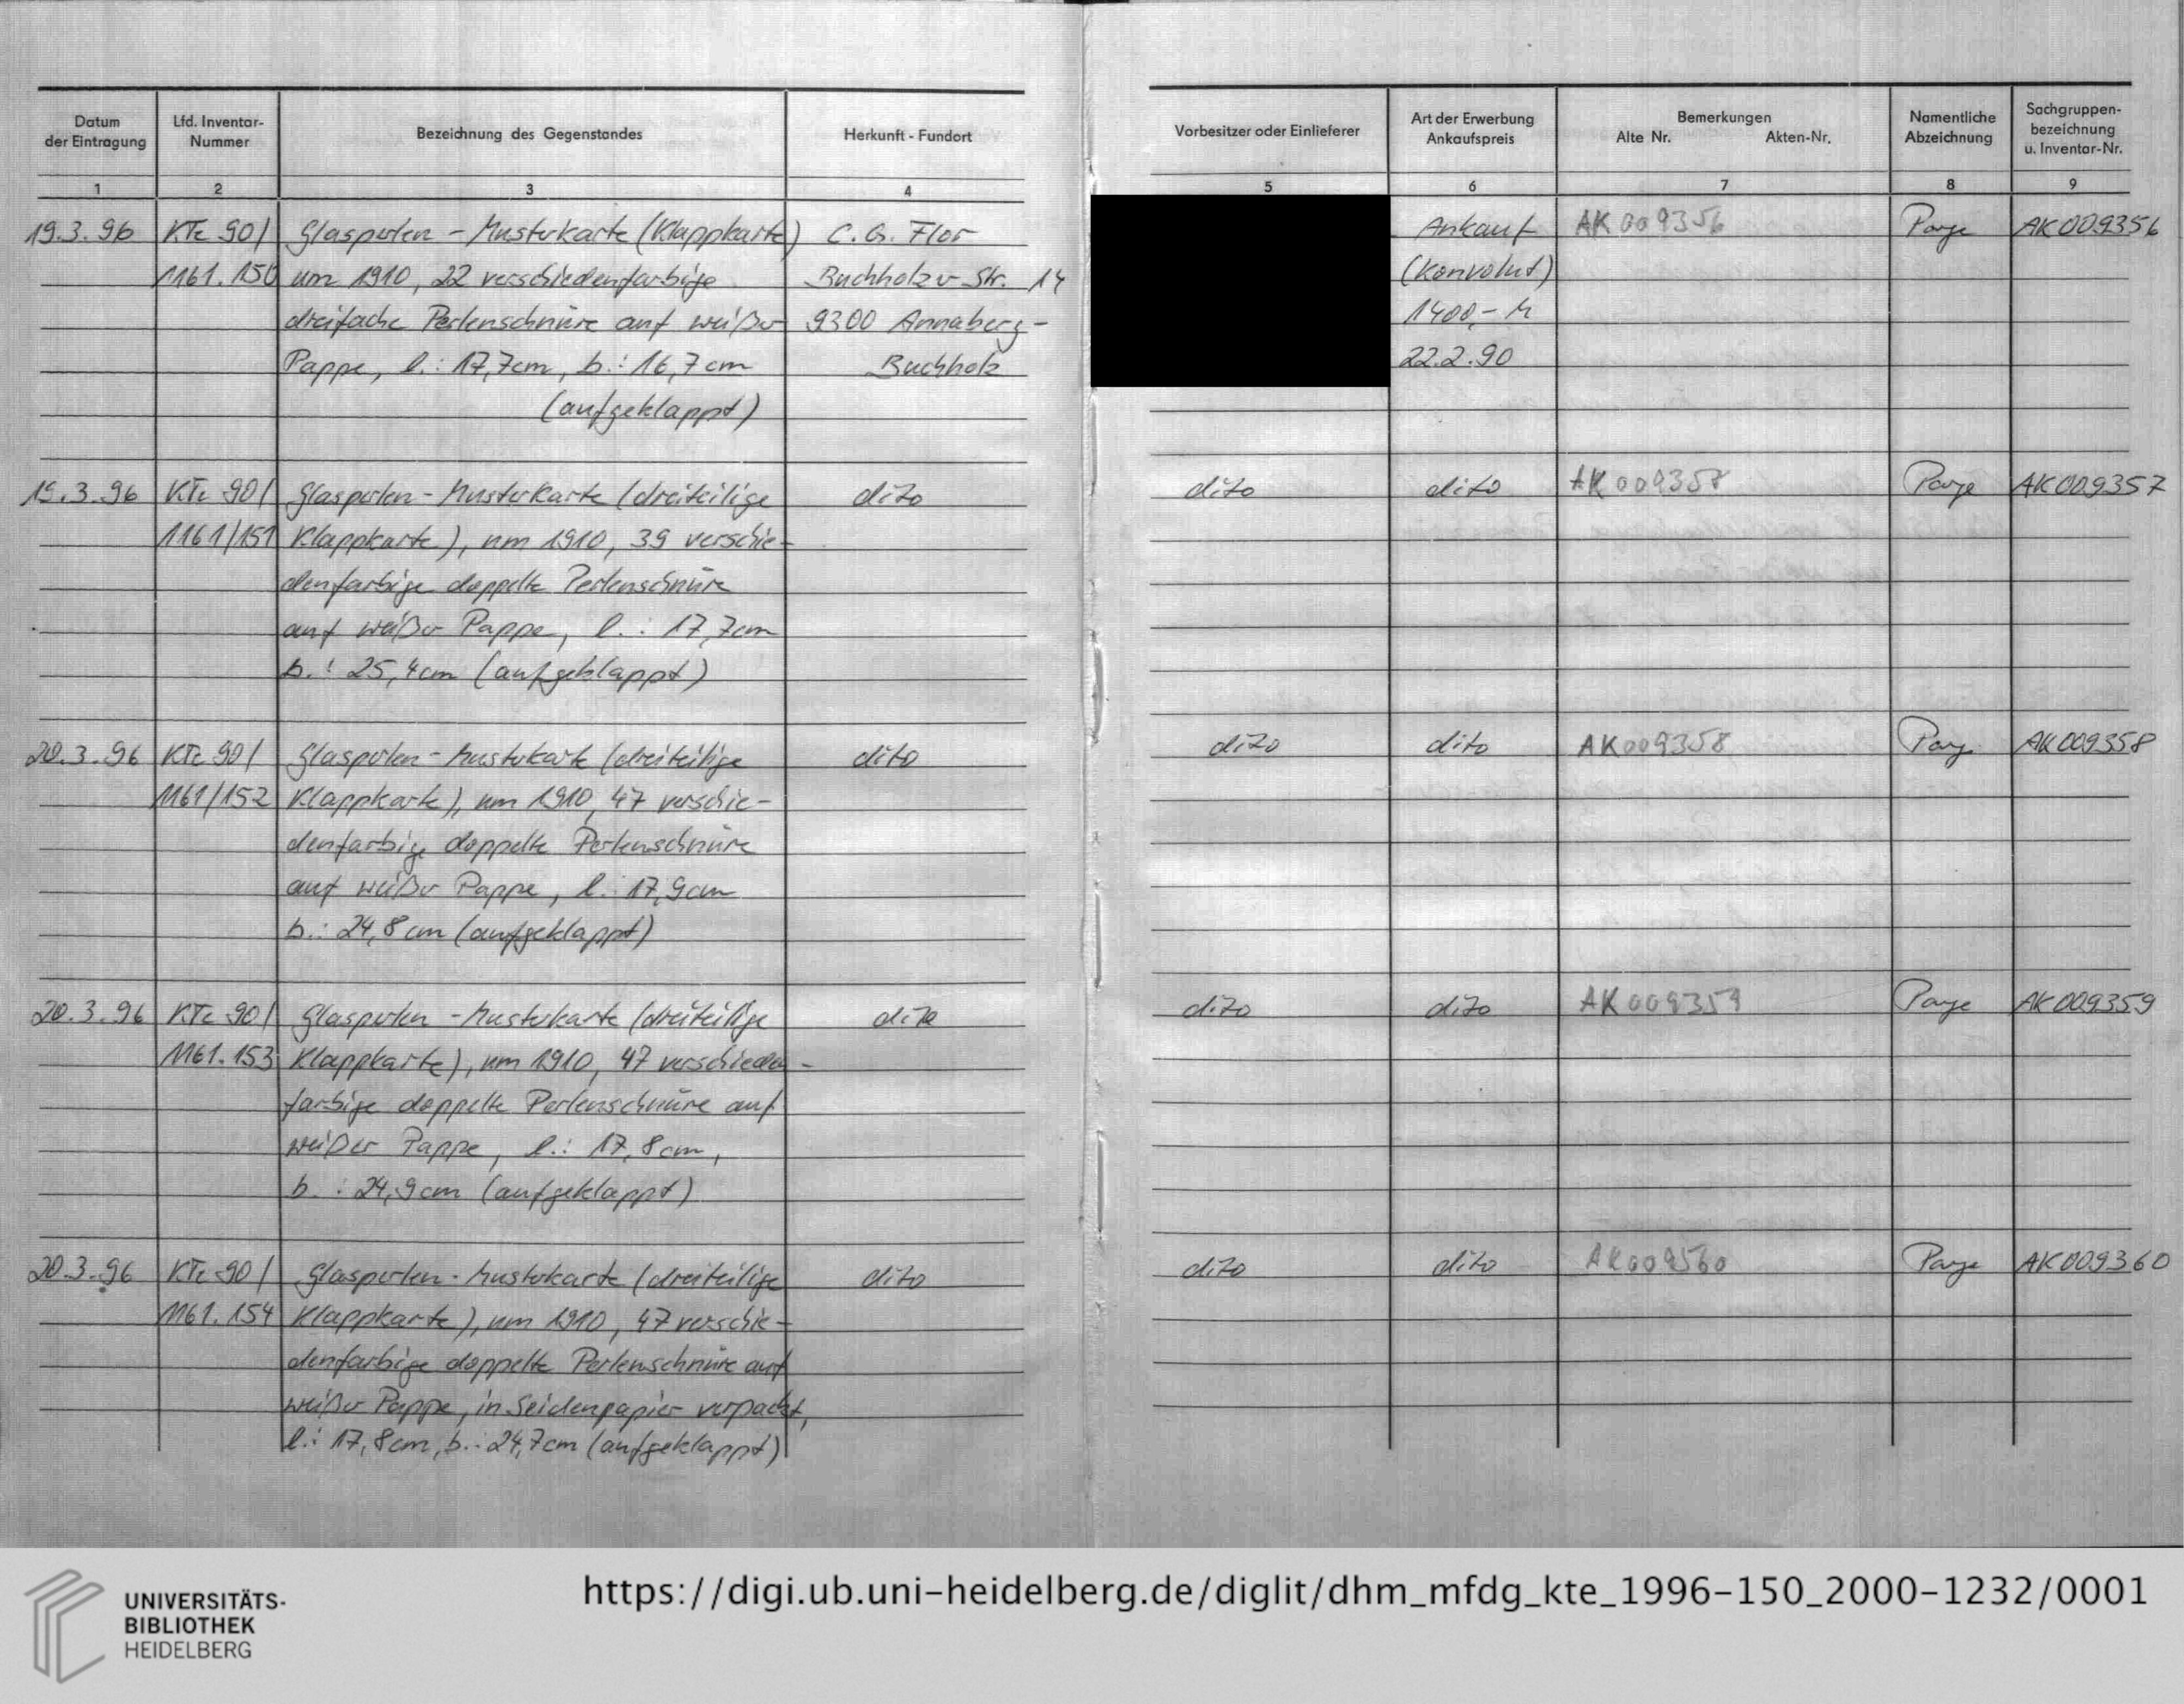 Datum der Eintragung
Lfd. Inventar-Nummer
Bezeichnung des Gegenstandes
Herkunft - Fundort
Vorbesitzer oder Einlieferer
Art der Erwerbung Ankaufspreis
Bemerkungen
Alte Nr. Akten-Nr.
Namentliche Abzeichnung
Sachgruppen-bezeichnung u. Inventar-Nr.
1 2 3 4 5 6 7 8 9
19.3.96 KTe 90/ Glasperlen - Musterkarte (Klappkarte) C. G. Flor Ankauf AK 009356 AK 009356
1161.150 um 1910, 22 verschiedenfarbige Buchholzer Str. 14 (Konvolut)
dreifache Perlenschnüre auf weißer 9300 Annaberg- 1400,- M
Pappe, l.: 17,7cm, b.: 16,7cm Buchholz 22.2.90
(aufgeklappt)
19.3.96 KTe 90/ Glasperlen - Musterkarte (dreiteilige dito dito dito AK 009358 AK 009357
1161/151 Klappkarte), um 1910, 39 verschie-
denfarbige doppelte Perlenschnüre
auf weißer Pappe, l.: 17,7cm
b.: 25,4cm (aufgeklappt)
20.3.96 KTe 90/ Glasperlen - Musterkarte (dreiteilige dito dito dito AK 009358 AK 009358
1161/152 Klappkarte), um 1910, 47 verschie-
denfarbige doppelte Perlenschnüre
auf weißer Pappe, l.: 17,9cm
b.: 24,8cm (aufgeklappt)
20.3.96 KTe 90/ Glasperlen - Musterkarte (dreiteilige dito dito dito AK 009359 AK 009359
1161.153 Klappkarte), um 1910, 47 verschieden-
farbige doppelte Perlenschnüre auf
weißer Pappe, l.: 17,8cm,
b.: 24,9cm (aufgeklappt)
20.3.96 KTe 90/ Glasperlen - Musterkarte (dreiteilige dito dito dito AK 009360
1161.154 Klappkarte), um 1910, 47 verschie-
denfarbige doppelte Perlenschnüre auf
weißer Pappe, in Seidenpapier verpackt,
l.: 17,8cm, b.: 24,7cm (aufgeklappt)
UNIVERSITÄTS-
BIBLIOTHEK
HEIDELBERG
https://digi.ub.uni-heidelberg.de/diglit/dhm_mfdg_kte_1996-150_2000-1232/0001